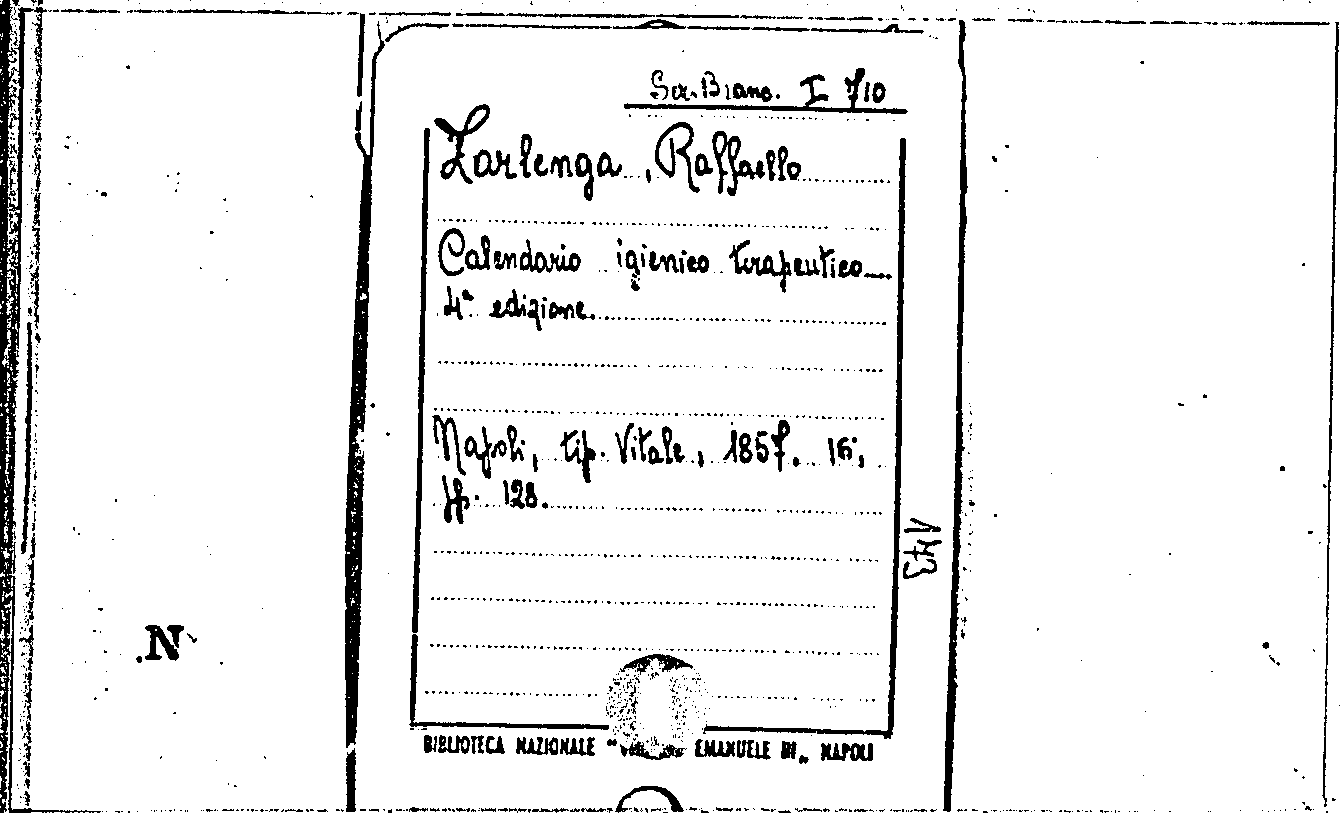 Scr. Bianc. I 710
Zarlenga, Raffaello
Calendario igienico terapeutico —
4ª edizione.
Napoli, tip. Vitale, 1857. 16°,
pp. 128.
N
BIBLIOTECA NAZIONALE " EMANUELE III„ NAPOLI